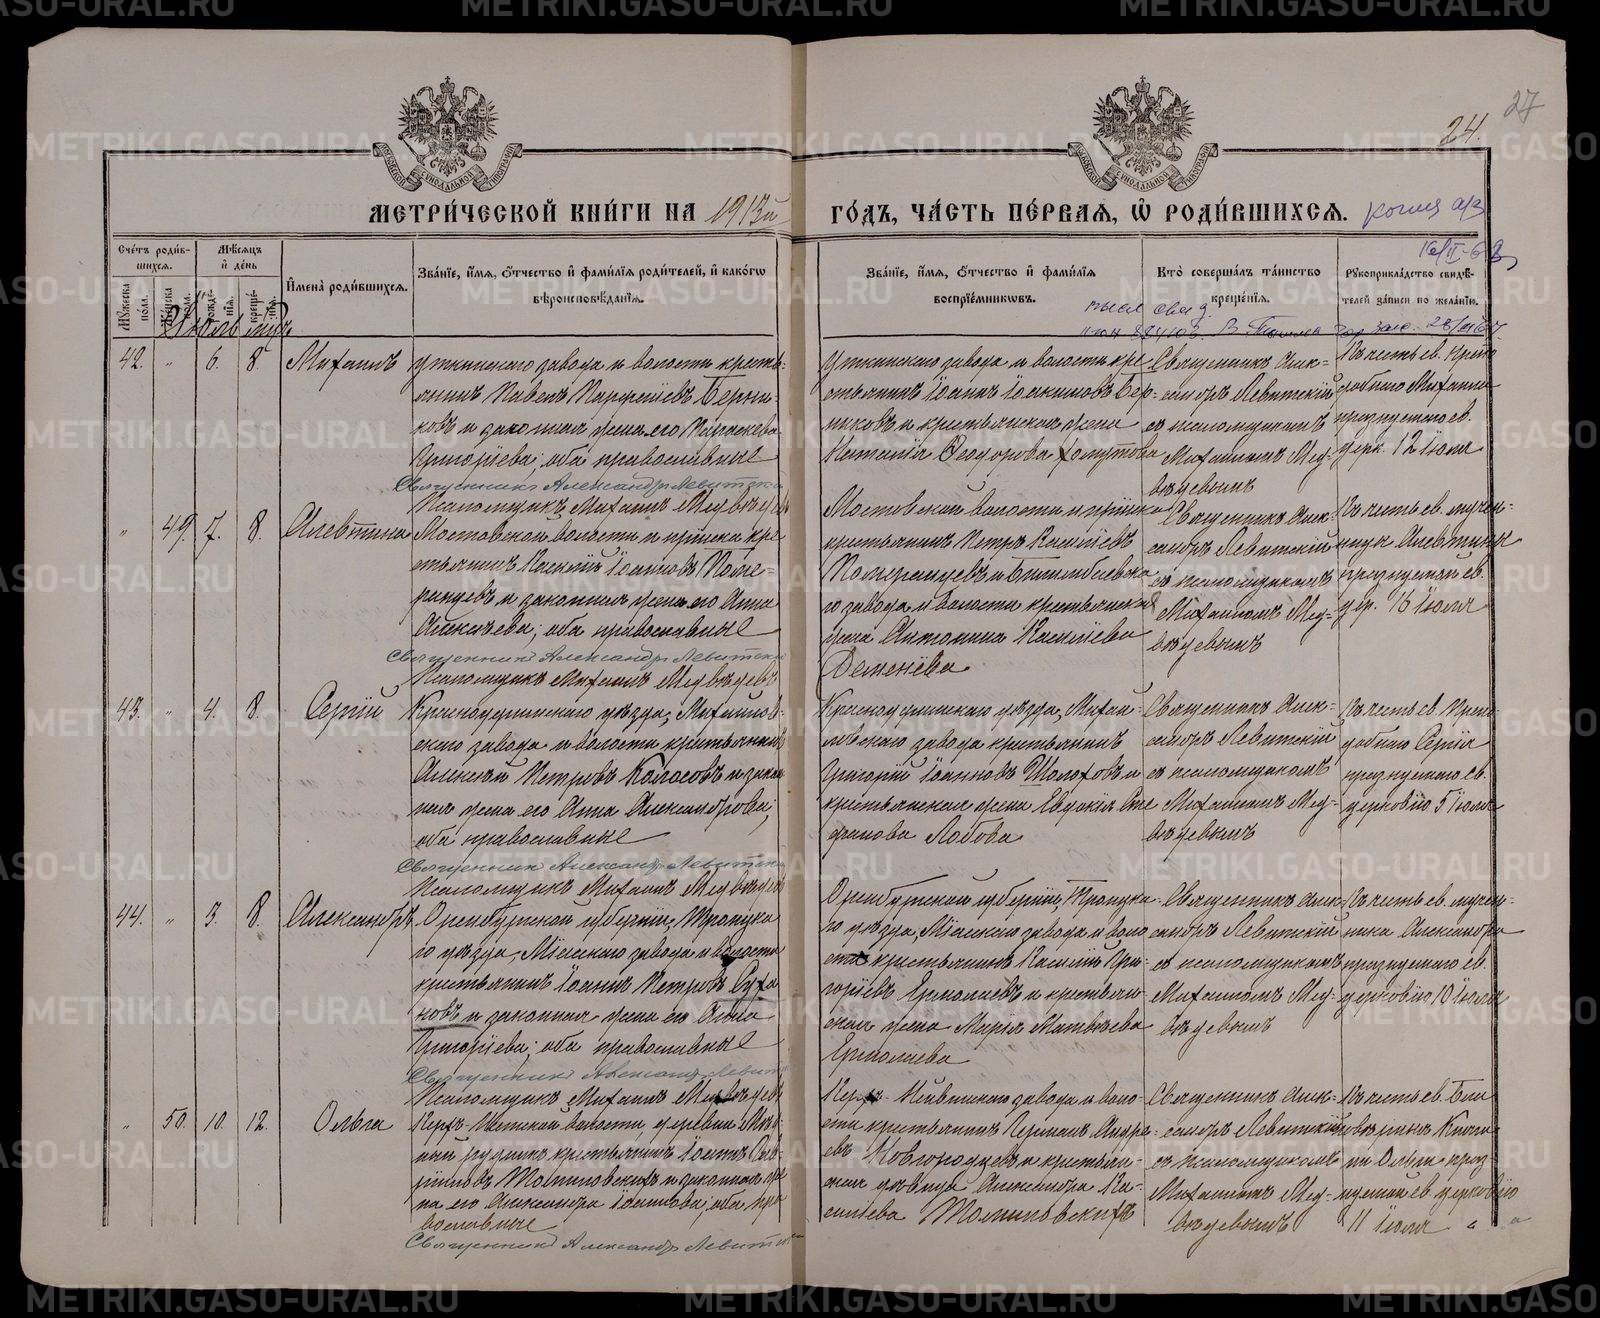 27
24.
МЕТРИ́ЧЕСКОЙ КНИ́ГИ НА 1913й ГО́ДЪ, ЧА́СТЬ ПЕ́РВАЯ, Ѡ РОДИ́ВШИХСЯ.
Сче́тъ роди́в-
шихся.
Му́жеска по́ла.
Же́нска по́ла.
Мѣ́сяцъ
и де́нь
рожде́нїя.
креще́нїя.
И́мена роди́вшихся.
Зва́нїе, и́мя, ѻ́тчество и фами́лїя роди́телей, и како́гѡ
вѣроисповѣ́данїя.
Зва́нїе, и́мя, ѻ́тчество и фами́лїя
воспрїе́мниковъ.
Кто̀ соверша́лъ та́инство
креще́нїя.
Рꙋкоприкла́дство свидѣ́-
телей за́писи по жела́нїю.
Іюль мѣс.
42. " 6. 8. Михаилъ
Уткинскаго завода и волости кресть-
янинъ Павелъ Парфеніевъ Берни-
ковъ и законная жена его Параскева
Григоріева; оба православные
Священникъ Александръ Левитскій
Псаломщикъ Михаилъ Медвѣдевъ
Уткинскаго завода и волости кре-
стьянинъ Іоаннъ Іоакимовъ Бер-
никовъ и крестьянская жена
Наталія Ѳеодорова Хомутова
Священникъ Алек-
сандръ Левитскій
съ псаломщикомъ
Михаиломъ Мед-
вѣдевымъ
Въ честь св. Препо-
добнаго Михаила
празднуемаго св.
церк. 12 Іюля
" 49. 7. 8. Алевтина
Мостовской волости и прїиска кре-
стьянинъ Василій Іоанновъ Поме-
ранцевъ и законная жена его Анна
Алексѣева; оба православные
Священникъ Александръ Левитскій
Псаломщикъ Михаилъ Медвѣдевъ
Мостовской волости и прїиска
крестьянинъ Петръ Василіевъ
Померанцевъ и Билимбаевска-
го завода и волости крестьянская
жена Антонина Василіева
Деменёва
Священникъ Алек-
сандръ Левитскій
съ псаломщикомъ
Михаиломъ Мед-
вѣдевымъ
Въ честь св. мучен-
ицы Алевтины
празднуемой св.
цер. 16 Іюля
43. " 4. 8. Сергій
Красноуфимскаго уѣзда, Михайлов-
скаго завода и волости крестьянинъ
Алексѣй Петровъ Колосовъ и закон-
ная жена его Анна Александрова;
оба православные
Священникъ Александръ Левитскій
Псаломщикъ Михаилъ Медвѣдевъ
Красноуфимскаго уѣзда, Михай-
ловскаго завода крестьянинъ
Григорій Іоанновъ Шолоховъ и
крестьянская жена Евдокія Сте-
фанова Лобова
Священникъ Алек-
сандръ Левитскій
съ псаломщикомъ
Михаиломъ Мед-
вѣдевымъ
Въ честь св. Препо-
добнаго Сергія
празднуемаго св.
церковію 5 Іюля
44. " 5. 8. Александръ
Оренбургской губерніи, Троицка-
го уѣзда, Міасскаго завода и волости
крестьянинъ Іоаннъ Петровъ Суха-
новъ и законная жена его Анна
Григоріева; оба православные
Священникъ Александръ Левитскій
Псаломщикъ Михаилъ Медвѣдевъ
Оренбургской губерніи, Троицка-
го уѣзда, Міасскаго завода и воло-
сти крестьянинъ Василій Гри-
горіевъ Ермолаевъ и крестьян-
ская жена Марія Матвѣева
Ермолаева
Священникъ Алек-
сандръ Левитскій
съ псаломщикомъ
Михаиломъ Мед-
вѣдевымъ
Въ честь св. мучен-
ника Александра
празднуемаго св.
церковію 10 Іюля
" 50. 10. 12. Ольга
Верх-Исетской волости, деревни Мѣд-
ный рудникъ крестьянинъ Іоаннъ Сер-
гіевъ Толшовскихъ и законная же-
на его Александра Іоаннова; оба пра-
вославные
Священникъ Александръ Левитскій
Верх-Нейвинскаго завода и воло-
сти крестьянинъ Германъ Андре-
евъ Новгородцевъ и крестьян-
ская дѣвица Александра Ва-
силіева
Священникъ Алек-
сандръ Левитскій
съ псаломщикомъ
Михаиломъ Мед-
вѣдевымъ
Въ честь св. Бла-
говѣрной Княги-
ни Ольги праз-
нуемой св. церковію
11 Іюля